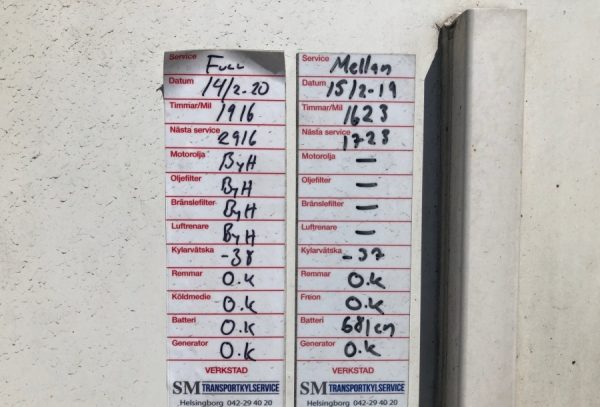 Service Full
Datum 14/2-20
Timmar/Mil 1916
Nästa service 2916
Motorolja ByH
Oljefilter ByH
Bränslefilter ByH
Luftrenare ByH
Kylarvätska -38
Remmar O.K
Köldmedie O.K
Batteri O.K
Generator O.K
VERKSTAD
SM TRANSPORTKYLSERVICE
Helsingborg 042-29 40 20
Service Mellan
Datum 15/2-19
Timmar/Mil 1623
Nästa service 1723
Motorolja —
Oljefilter —
Bränslefilter —
Luftrenare —
Kylarvätska -37
Remmar O.K
Freon O.K
Batteri
Generator O.K
VERKSTAD
SM TRANSPORTKYLSERVICE
Helsingborg 042-29 40 20